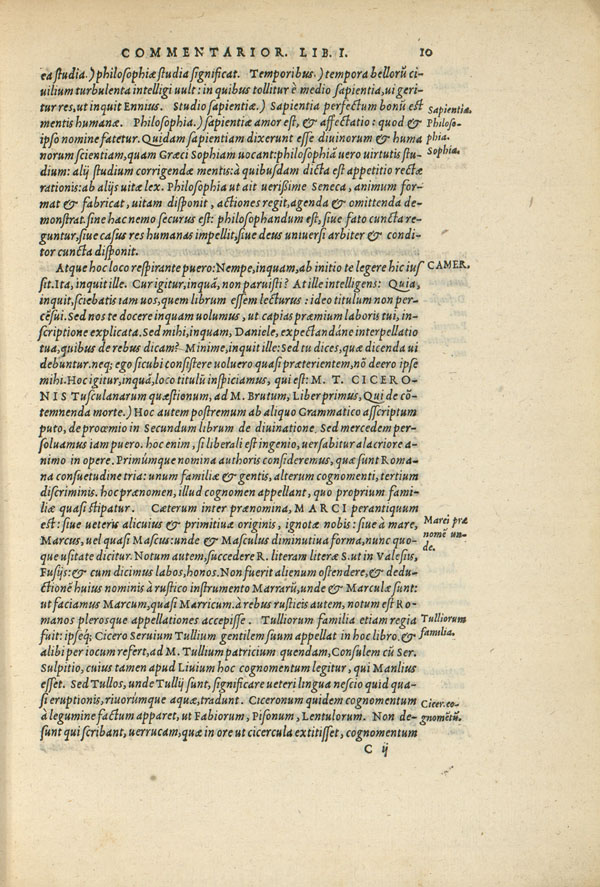 COMMENTARIOR. LIB. I. 10
ea studia.) philosophiæ studia significat. Temporibus.) tempora bellorũ ci-
uilium turbulenta intelligi uult: in quibus tollitur è medio sapientia, ui geri-
tur res, ut inquit Ennius. Studio sapientiæ.) Sapientia perfectum bonũ est
mentis humanæ. Philosophia.) sapientiæ amor est, & affectatio: quod &
ipso nomine fatetur. Quidam sapientiam dixerunt esse diuinorum & huma
norum scientiam, quam Græci Sophiam uocant: philosophiã uero uirtutis stu-
dium: alij studium corrigendæ mentis: à quibusdam dicta est appetitio rectæ
rationis: ab alijs uitæ lex. Philosophia ut ait uerißime Seneca, animum for-
mat & fabricat, uitam disponit, actiones regit, agenda & omittenda de-
monstrat. sine hac nemo securus est: philosophandum est, siue fato cuncta re-
guntur, siue casus res humanas impellit, siue deus uniuersi arbiter & condi-
tor cuncta disponit.
Sapientia.
Philoso-
phia.
Sophia.
Atque hoc loco respirante puero: Nempe, inquam, ab initio te legere hic ius
sit. Ita, inquit ille. Cur igitur, inquã, non paruisti? At ille intelligens: Quia,
inquit, sciebatis iam uos, quem librum essem lecturus: ideo titulum non per-
cẽsui. Sed nos te docere inquam uolumus, ut capias præmium laboris tui, in-
scriptione explicata. Sed mihi, inquam, Daniele, expectandáne interpellatio
tua, quibus de rebus dicam? Minime, inquit ille: Sed tu dices, quæ dicenda ui
debuntur. neq; ego sicubi consistere uoluero quasi præterientem, nõ deero ipse
mihi. Hoc igitur, inquã, loco titulũ inspiciamus, qui est: M. T. CICERO-
NIS Tusculanarum quæstionum, ad M. Brutum, Liber primus, Qui de cõ-
temnenda morte.) Hoc autem postremum ab aliquo Grammatico asscriptum
puto, de proœmio in Secundum librum de diuinatione. Sed mercedem per-
soluamus iam puero. hoc enim, si liberali est ingenio, uersabitur alacriore a-
nimo in opere. Primúmque nomina authoris consideremus, quæ sunt Roma-
na consuetudine tria: unum familiæ & gentis, alterum cognomenti, tertium
discriminis. hoc prænomen, illud cognomen appellant, quo proprium fami-
liæ quasi stipatur. Cæterum inter prænomina, MARCI perantiquum
est: siue ueteris alicuius & primitiuæ originis, ignotæ nobis: siue à mare,
Marcus, uel quasi Mascus: unde & Masculus diminutiua forma, nunc quo-
que usitate dicitur. Notum autem, succedere R. literam literæ S. ut in Valesijs,
Fusijs: & cum dicimus labos, honos. Non fuerit alienum ostendere, & dedu-
ctionẽ huius nominis à rustico instrumento Marrarũ, unde & Marculæ sunt:
ut faciamus Marcum, quasi Marricum. à rebus rusticis autem, notum est Ro-
manos plerosque appellationes accepisse. Tulliorum familia etiam regia
fuit: ipseq; Cicero Seruium Tullium gentilem suum appellat in hoc libro. &
alibi per iocum refert, ad M. Tullium patricium quendam, Consulem cũ Ser.
Sulpitio, cuius tamen apud Liuium hoc cognomentum legitur, qui Manlius
esset. Sed Tullos, unde Tullij sunt, significare ueteri lingua nescio quid qua-
si eruptionis, riuorumque aquæ, tradunt. Ciceronum quidem cognomentum
à legumine factum apparet, ut Fabiorum, Pisonum, Lentulorum. Non de-
sunt qui scribant, uerrucam, quæ in ore ut cicercula extitisset, cognomentum
CAMER.
Marci præ
nomẽ un-
de.
Tulliorum
familia.
Cicer. co-
gnomẽtũ.
C ij